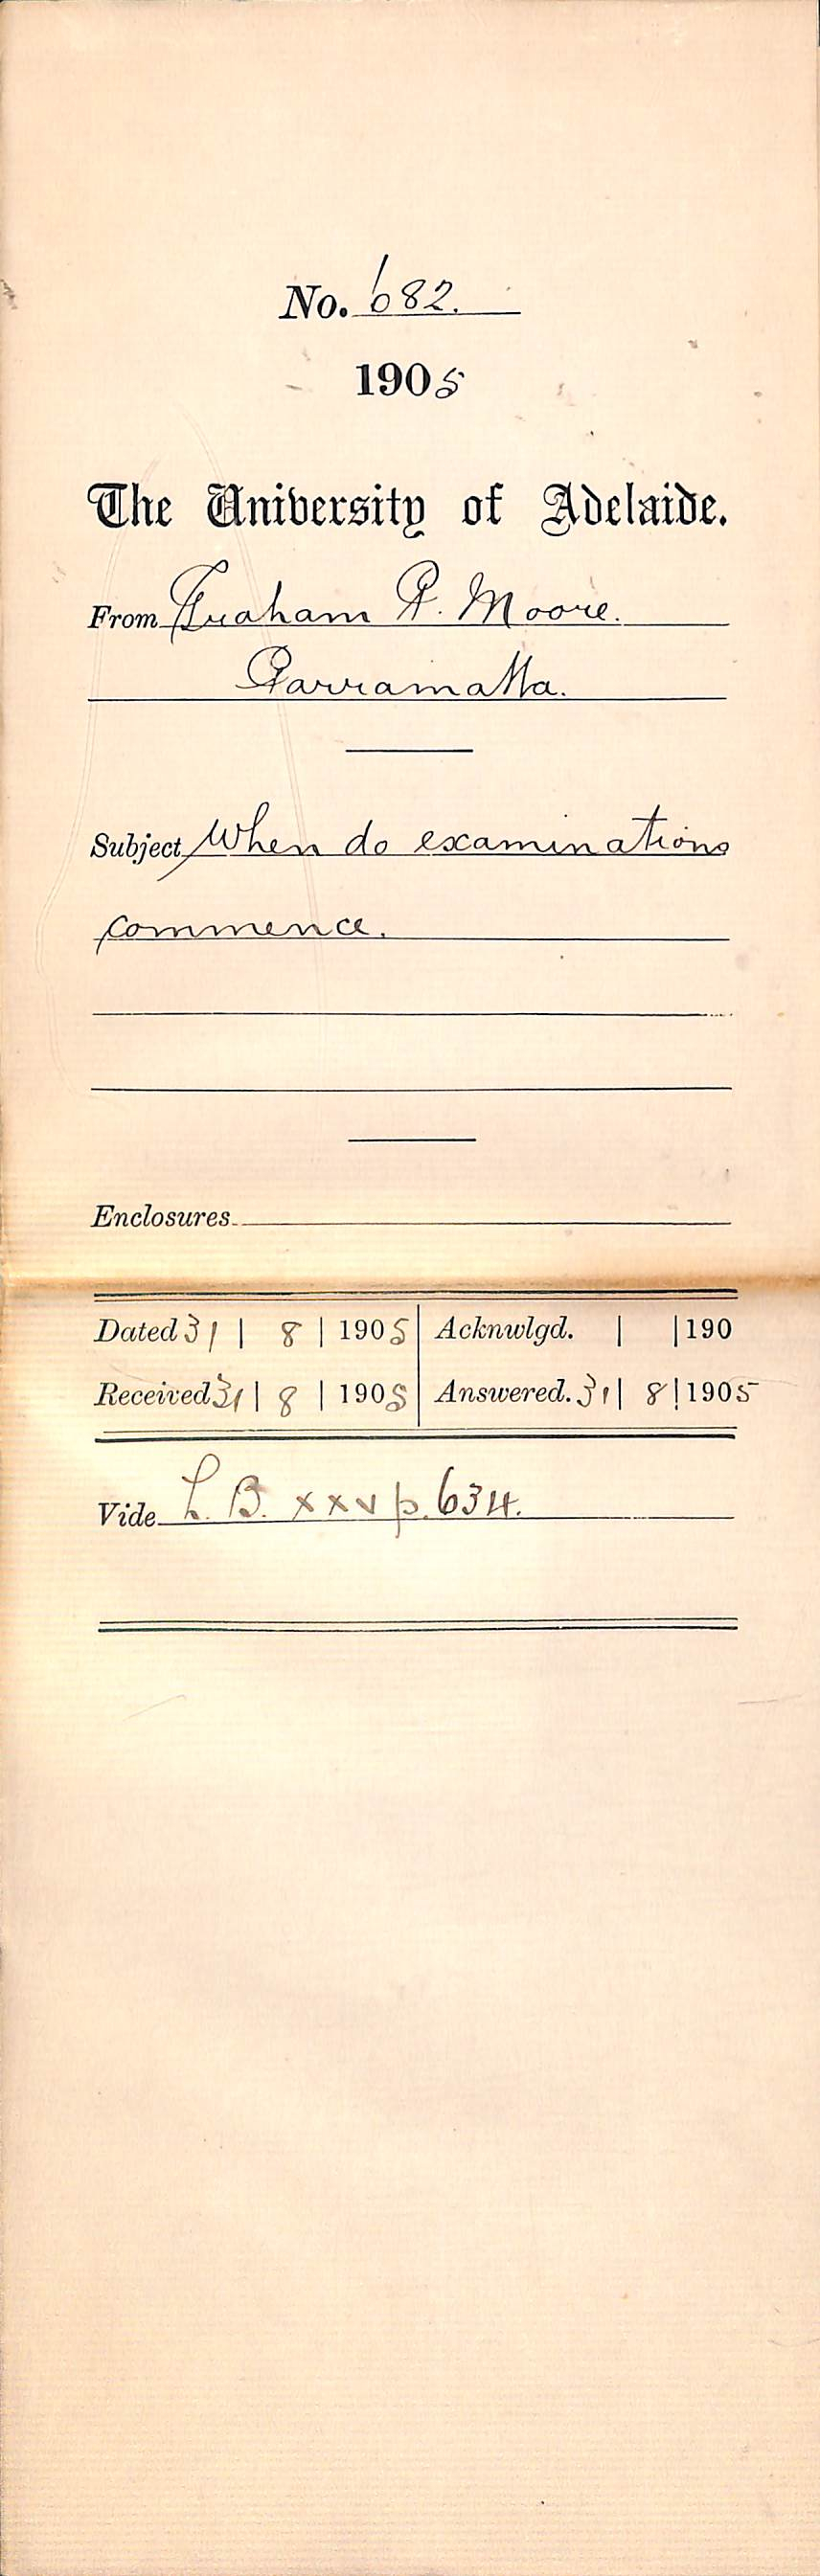 No. 682.
1905
The University of Adelaide.
From Graham P. Moore.
Parramatta.
Subject When do examinations
commence.
Enclosures
Dated 31 | 8 | 1905 | Acknwlgd. | | 190
Received 31 | 8 | 1905 | Answered. 31 | 8 | 1905
Vide L. B. xxv p. 634.